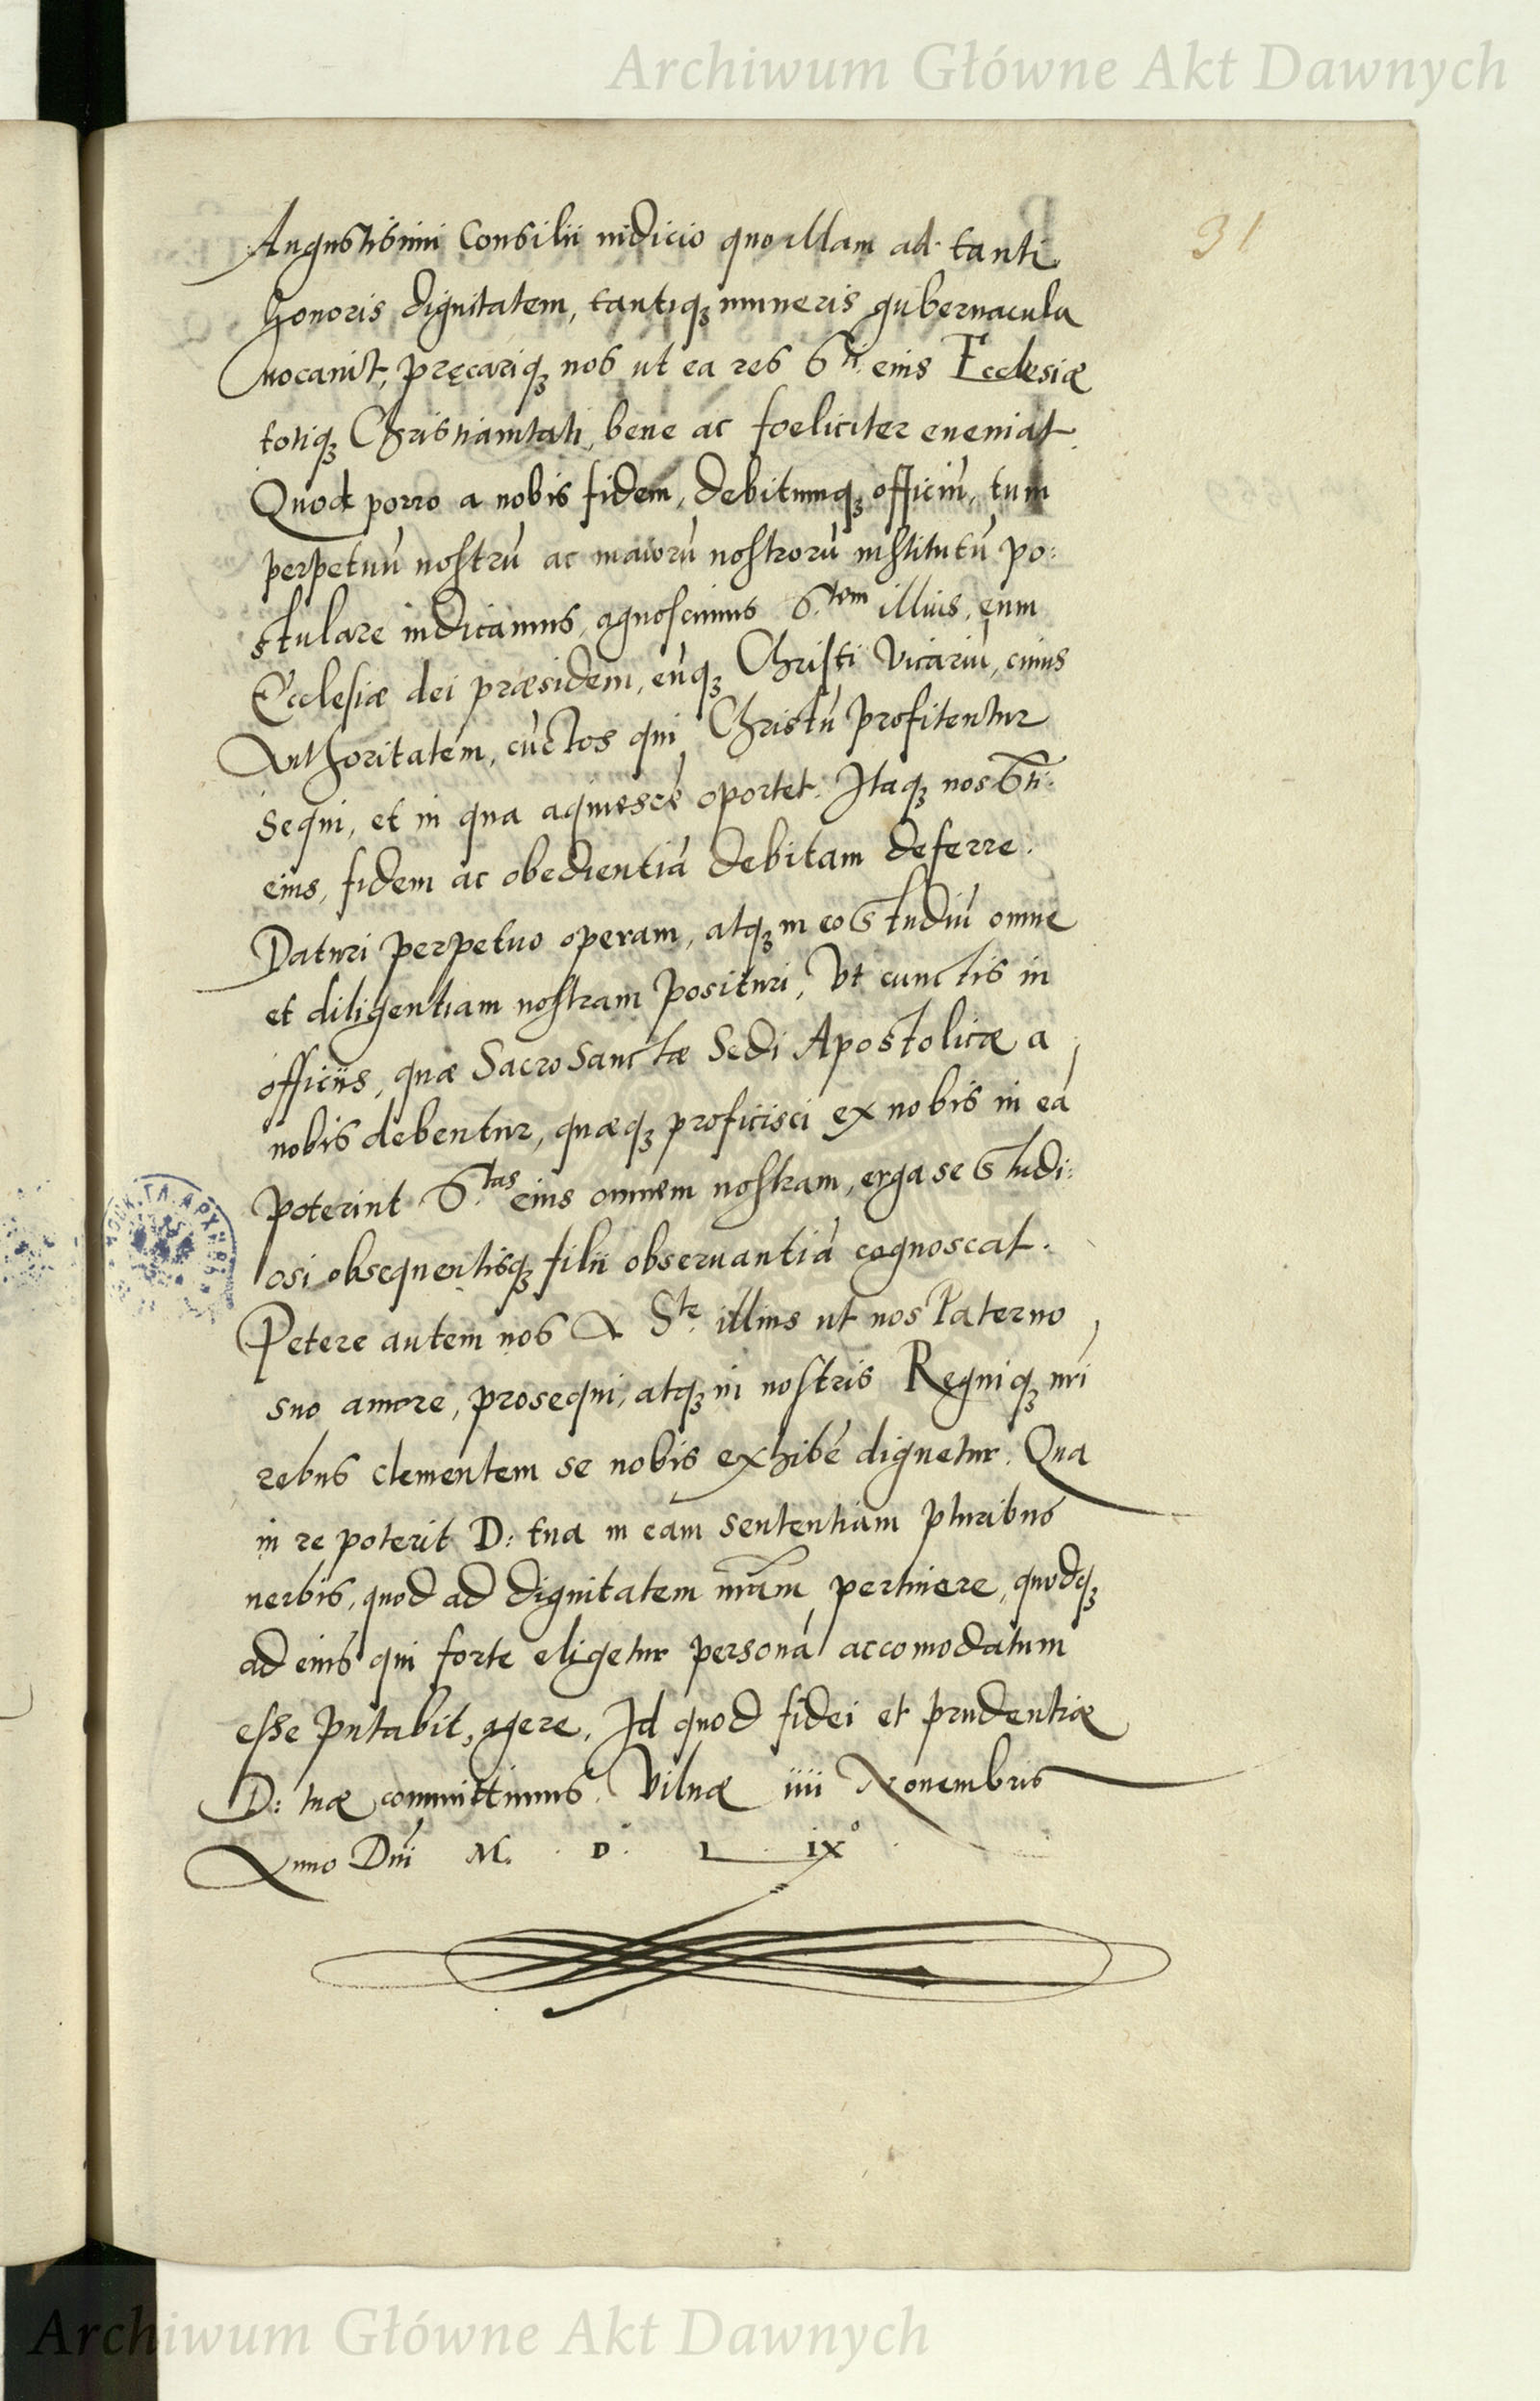 Archiwum Główne Akt Dawnych
31
Augustissimi Consilii iudicio quo illam ad tanti
honoris dignitatem, tantiqꝫ muneris gubernacula
uocauit, pręcariqꝫ nos ut ea res S.ti eius Ecclesiæ
totiqꝫ Christianitati, bene ac foeliciter eueniat.
Quod porro a nobis fidem, debitumqꝫ officiũ, tum
perpetuũ nostrũ ac maiorũ nostrorũ institutũ po:
stulare iudicamus, agnoscimus S.tem illius, eum
Ecclesiæ dei præsidem, eũqꝫ Christi Vicariũ, cuius
Authoritatem, cũctos qui Christũ profitentur
sequi, et in qua aquiescẽ oportet. Itaqꝫ nos S.ti
eius, fidem ac obedientiã debitam deferre.
Daturi perpetuo operam, atqꝫ in eo studiũ omne
et diligentiam nostram posituri, Vt cunctis in
officiis, quæ Sacrosanctæ Sedi Apostolicæ a
nobis debentur, quæqꝫ proficisci ex nobis in eã
poterint S.tas eius omnem nostram, erga se studi:
osi obsequentisqꝫ filii obseruantiã cognoscat.
Petere autem nos A S.te illius ut nos Paterno
suo amore, prosequi, atqꝫ in nostris Regniqꝫ nri
rebus clementem se nobis exhibẽ dignetur. Qua
in re poterit D: tua in eam sententiam pluribus
uerbis, quod ad dignitatem nram pertinere, quodqꝫ
ad eius qui forte eligetur personã accomodatum
esse putabit, agere, Id quod fidei et prudentiæ
D: tuæ committimus. Vilnæ iiii Nouembris
Anno Dni M. D. L IX°
Archiwum Główne Akt Dawnych